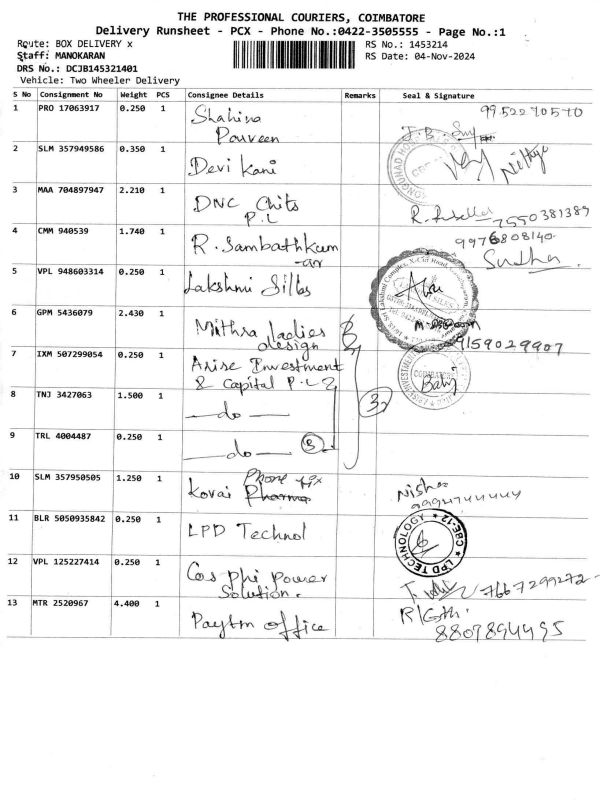 THE PROFESSIONAL COURIERS, COIMBATORE
Delivery Runsheet - PCX - Phone No.:0422-3505555 - Page No.:1
Route: BOX DELIVERY x
RS No.: 1453214
Staff: MANOKARAN
RS Date: 04-Nov-2024
DRS No.: DCJB145321401
Vehicle: Two Wheeler Delivery
S No Consignment No Weight PCS Consignee Details Remarks Seal & Signature
1 PRO 17063917 0.250 1 Shahina
Parveen
2 SLM 357949586 0.350 1 Devi Kani
3 MAA 704897947 2.210 1 DNC Chits
P.L 7550381389
4 CMM 940539 1.740 1 R. Sambathkum
-ar 9976808140
Sudha
5 VPL 948603314 0.250 1 Lakshmi Silks
6 GPM 5436079 2.430 1 Mithra ladies
design 9159029907
7 IXM 507299054 0.250 1 Arise Investment
& Capital P.L
8 TNJ 3427063 1.500 1 — do — 3
9 TRL 4004487 0.250 1 — do — 3
10 SLM 357950505 1.250 1 Kovai Pharma
Phone
Nisha
11 BLR 5050935842 0.250 1 LPD Technol
LPD TECHNOLOGY CBE-12
12 VPL 125227414 0.250 1 Cos Phi Power
Solution. 7667299272
13 MTR 2520967 4.400 1 Paytm office
8809894495